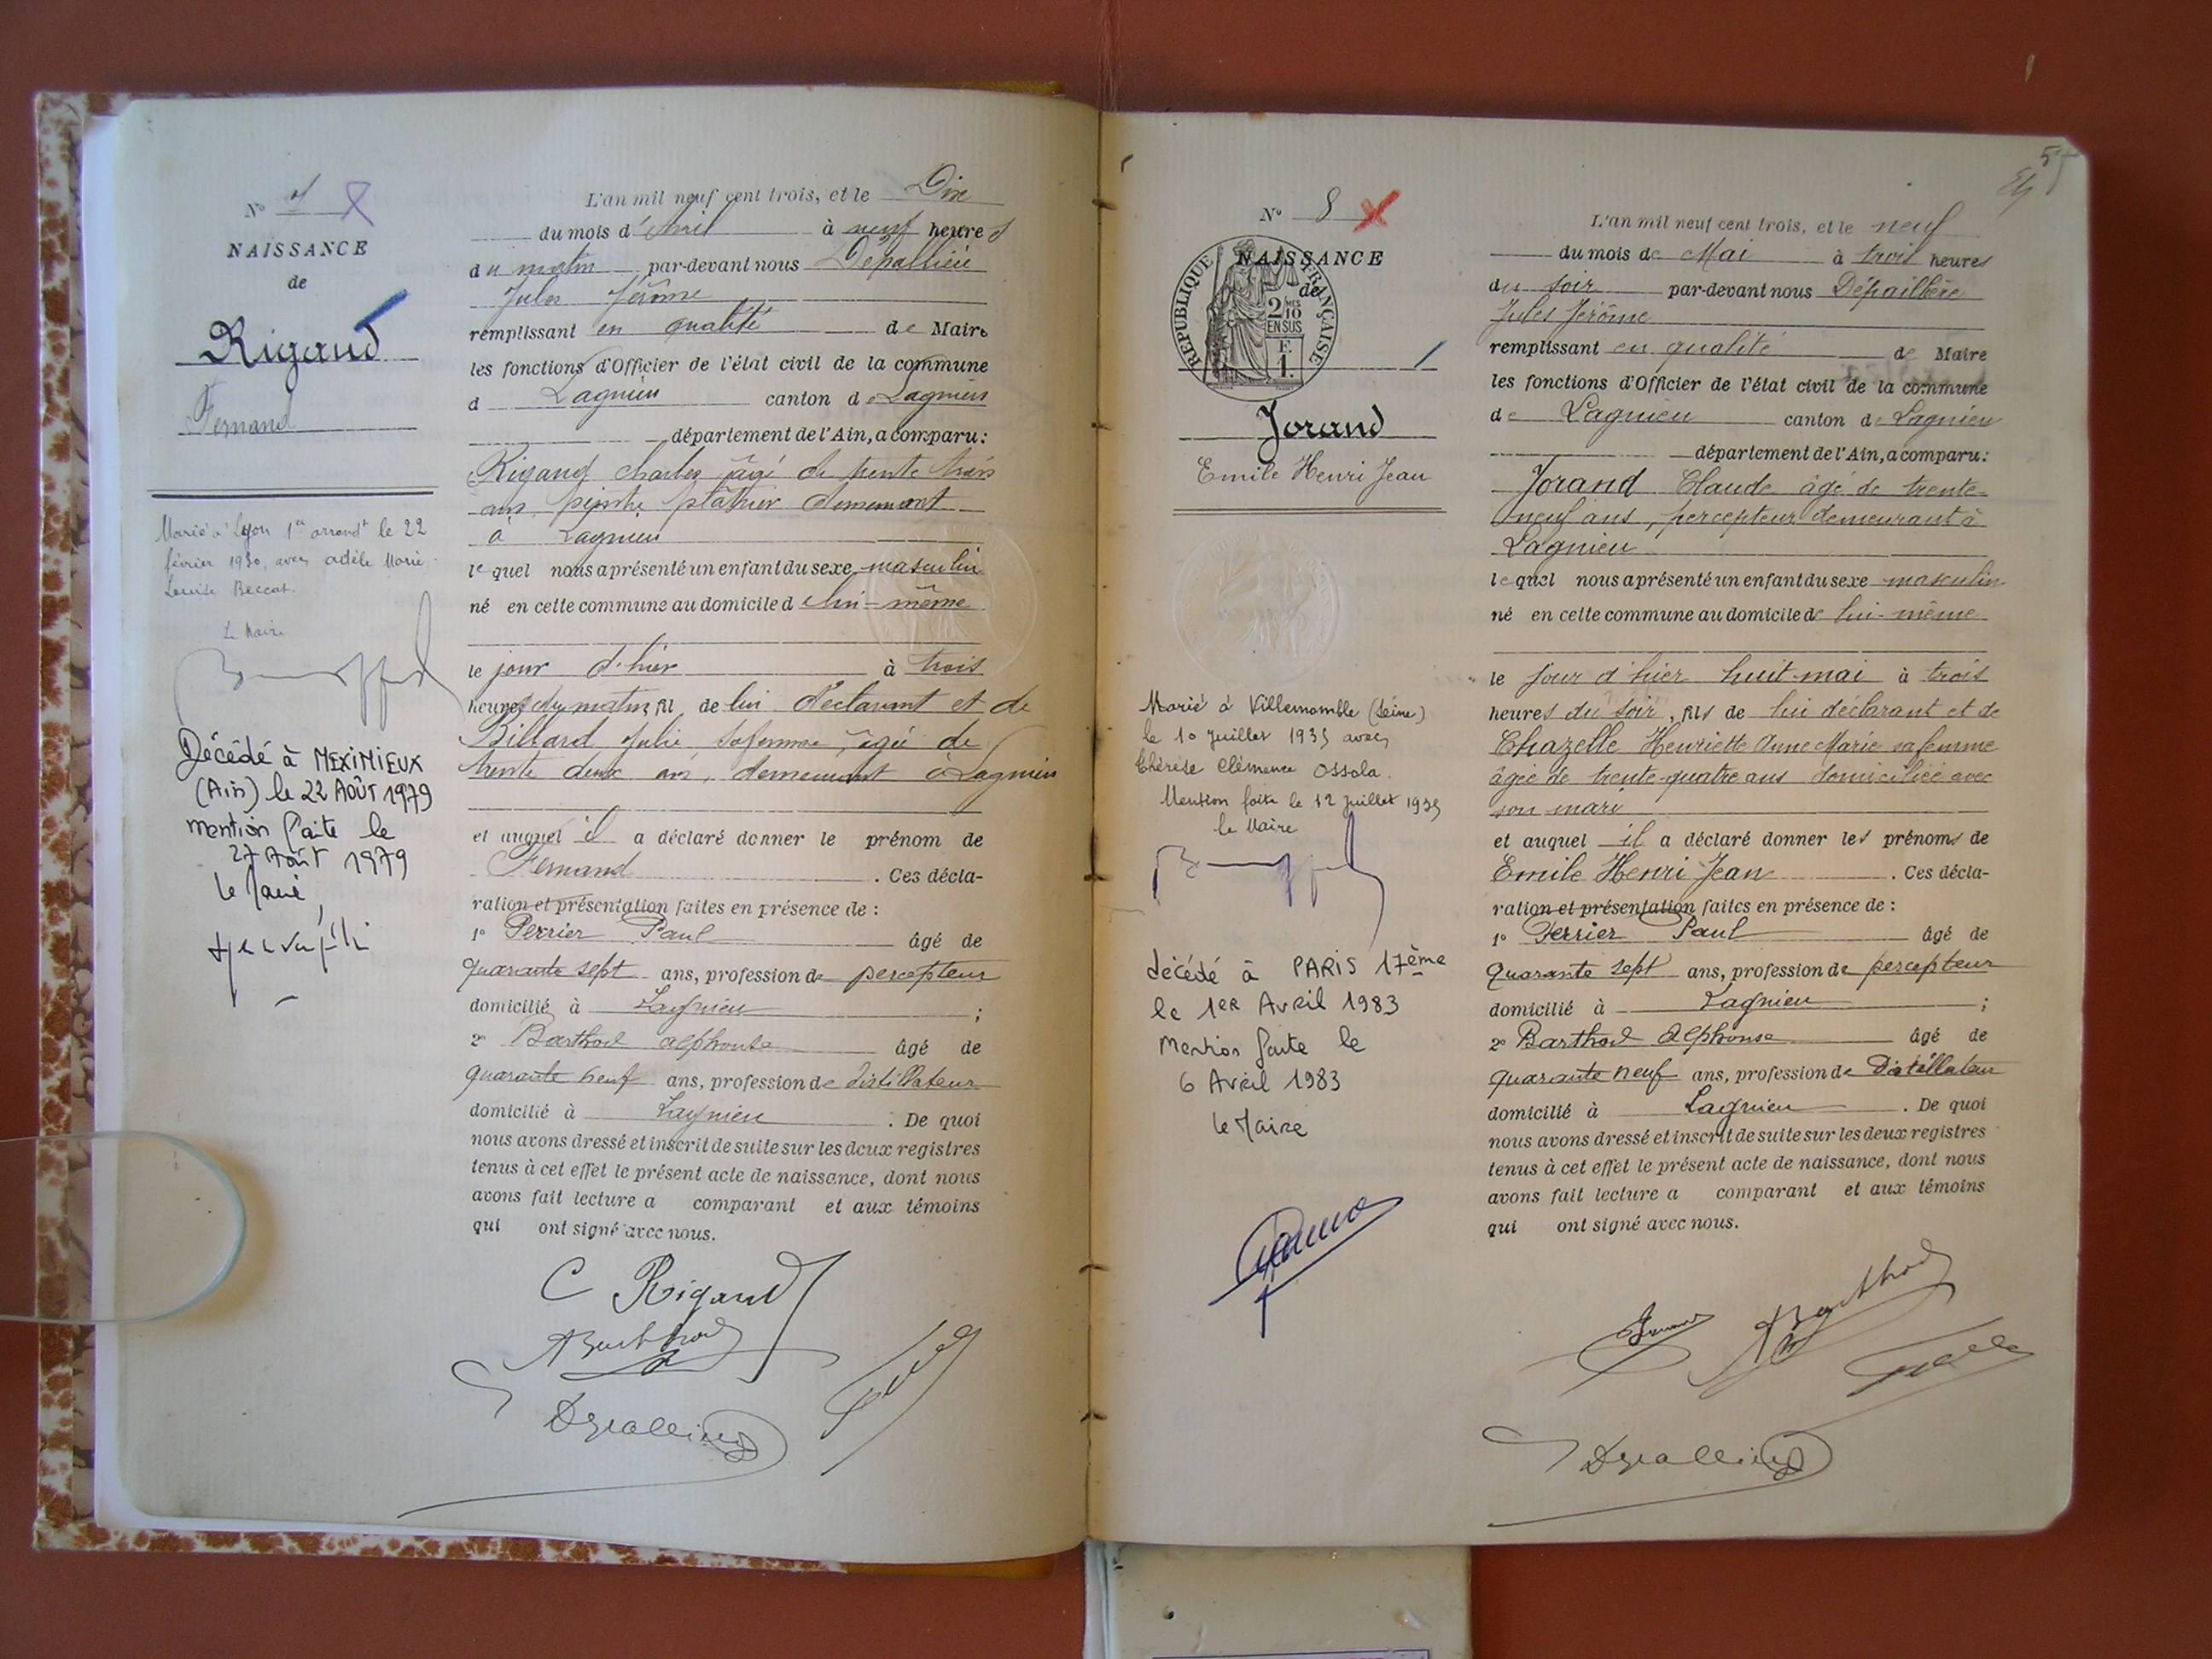 N° 7
NAISSANCE
de
Rigaud
Fernand
Marié à Lyon 1er arrondt le 22
février 1930, avec Adèle Marie
Louise Beccat.
Le Maire
Décédé à MEXIMIEUX
(Ain) le 22 AOÛT 1979
mention faite le
27 Août 1979
le Maire
L'an mil neuf cent trois, et le Dix
du mois d'Avril à neuf heures
du matin par-devant nous Dépallière
Jules Jérôme
remplissant en qualité de Maire
les fonctions d'Officier de l'état civil de la commune
d Lagnieu canton de Lagnieu
département de l'Ain, a comparu:
Rigaud Charles âgé de trente trois
ans, peintre plâtrier demeurant
à Lagnieu
lequel nous a présenté un enfant du sexe masculin
né en cette commune au domicile de lui-même
le jour d'hier à trois
heures du matin, fil de lui déclarant et de
Billard Julie sa femme, âgée de
trente deux ans, demeurant à Lagnieu
et auquel il a déclaré donner le prénom de
Fernand. Ces décla-
ration et présentation faites en présence de:
1° Perrier Paul âgé de
quarante sept ans, profession de percepteur
domicilié à Lagnieu;
2° Barthod Alphonse âgé de
quarante neuf ans, profession de distillateur
domicilié à Lagnieu. De quoi
nous avons dressé et inscrit de suite sur les deux registres
tenus à cet effet le présent acte de naissance, dont nous
avons fait lecture a comparant et aux témoins
qui ont signé avec nous.
C Rigaud
ABarthod
57
N° 8
NAISSANCE
de
REPUBLIQUE FRANÇAISE
2 MES
10
EN SUS
F.
1.
Jorand
Emile Henri Jean
Marié à Villemomble (Seine)
le 10 Juillet 1935 avec
Thérèse Clémence Ossola.
Mention faite le 12 Juillet 1935
le Maire
décédé à PARIS 17ème
le 1ER Avril 1983
Mention faite le
6 Avril 1983
le Maire
L'an mil neuf cent trois, et le neuf
du mois de Mai à trois heures
du soir par-devant nous Dépallière
Jules Jérôme
remplissant en qualité de Maire
les fonctions d'Officier de l'état civil de la commune
de Lagnieu canton de Lagnieu
département de l'Ain, a comparu:
Jorand Claude âgé de trente-
neuf ans, percepteur demeurant à
Lagnieu
lequel nous a présenté un enfant du sexe masculin
né en cette commune au domicile de lui-même
le jour d'hier huit mai à trois
heures du soir, fils de lui déclarant et de
Chazelle Henriette Anne Marie sa femme
âgée de trente-quatre ans domiciliée avec
son mari
et auquel il a déclaré donner les prénoms de
Emile Henri Jean. Ces décla-
ration et présentation faites en présence de:
1° Perrier Paul âgé de
quarante sept ans, profession de percepteur
domicilié à Lagnieu;
2° Barthod Alphonse âgé de
quarante neuf ans, profession de Distillateur
domicilié à Lagnieu. De quoi
nous avons dressé et inscrit de suite sur les deux registres
tenus à cet effet le présent acte de naissance, dont nous
avons fait lecture a comparant et aux témoins
qui ont signé avec nous.
ABarthod